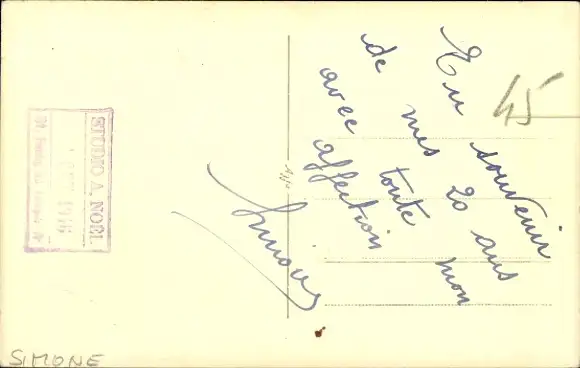 En souvenir
de mes 20 ans
avec toute mon
affection
Simone
45
STUDIO A. NOEL
SIMONE